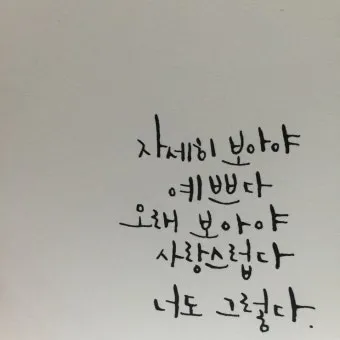 자세히 보아야
예쁘다
오래 보아야
사랑스럽다
너도 그렇다.